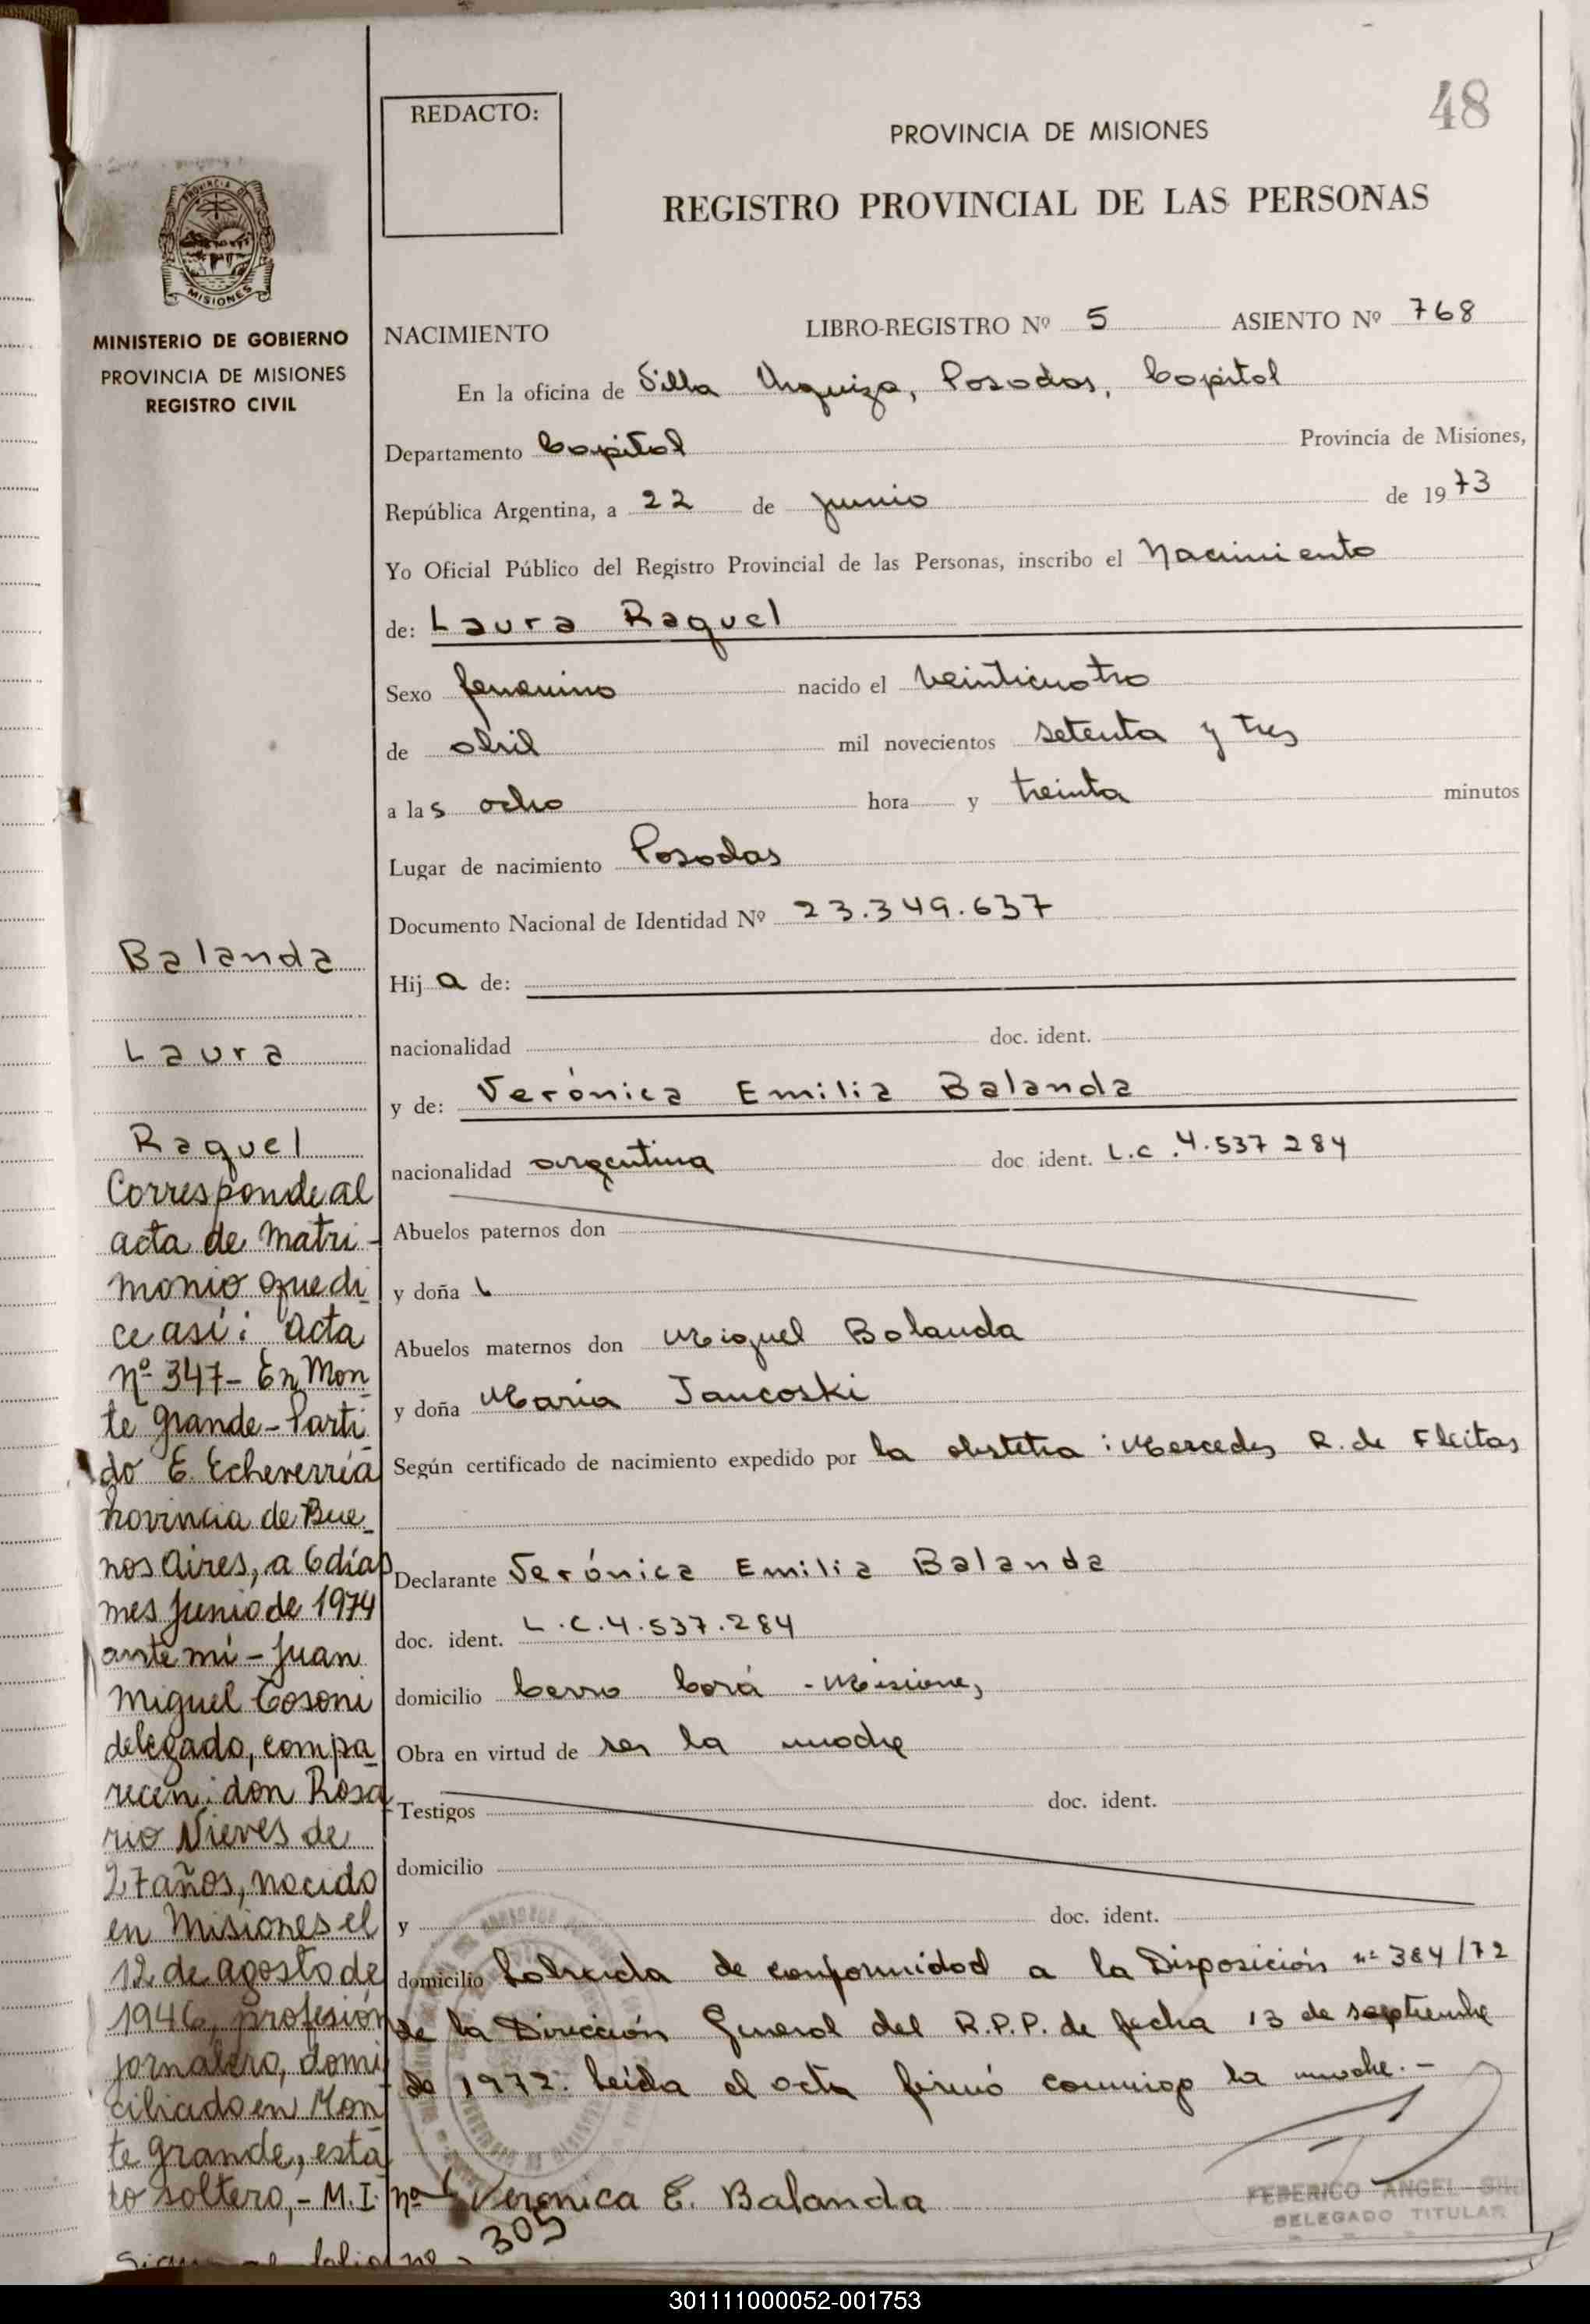 48
REDACTO:
PROVINCIA DE MISIONES
REGISTRO PROVINCIAL DE LAS PERSONAS
MISIONES
MINISTERIO DE GOBIERNO
PROVINCIA DE MISIONES
REGISTRO CIVIL
NACIMIENTO LIBRO-REGISTRO Nº 5 ASIENTO Nº 768
En la oficina de Villa Urquiza, Posadas, Capital
Departamento Capital Provincia de Misiones,
República Argentina, a 22 de junio de 1973
Yo Oficial Público del Registro Provincial de las Personas, inscribo el Nacimiento
de: Laura Raquel
Sexo femenino nacido el veinticuatro
de abril mil novecientos setenta y tres
a las ocho hora y treinta minutos
Lugar de nacimiento Posadas
Documento Nacional de Identidad Nº 23.349.637
Hija de:
nacionalidad doc. ident.
y de: Verónica Emilia Balanda
nacionalidad argentina doc ident. L.C. 4.537 284
Abuelos paternos don
y doña
Abuelos maternos don Miguel Balanda
y doña María Jancoski
Según certificado de nacimiento expedido por la obstetra: Mercedes R. de Fleitas
Declarante Verónica Emilia Balanda
doc. ident. L.C. 4.537.284
domicilio Cerro Corá - Misiones
Obra en virtud de ser la madre
Testigos doc. ident.
domicilio
y doc. ident.
domicilio Labrada de conformidad a la Disposición nº 384/72
de la Dirección General del R.P.P. de fecha 13 de septiembre
de 1972. Leída el acta firmó conmigo la madre.-
Verónica E. Balanda
FEDERICO ANGEL
DELEGADO TITULAR
Balanda
Laura
Raquel
Corresponde al
acta de matri-
monio que di
ce así: acta
nº 347- En Mon
te Grande- Parti
do E. Echeverría
Provincia de Bue
nos Aires, a 6 días
mes Junio de 1974
ante mí - Juan
Miguel Cosoni
delegado, compa
recen: don Rosa
rio Nieves de
27 años, nacido
en Misiones el
12 de agosto de
1946, profesión
jornalero, domi
ciliado en Mon
te Grande, esta
do soltero,- M.I. nº
Sigue al folio nº 305
301111000052-001753